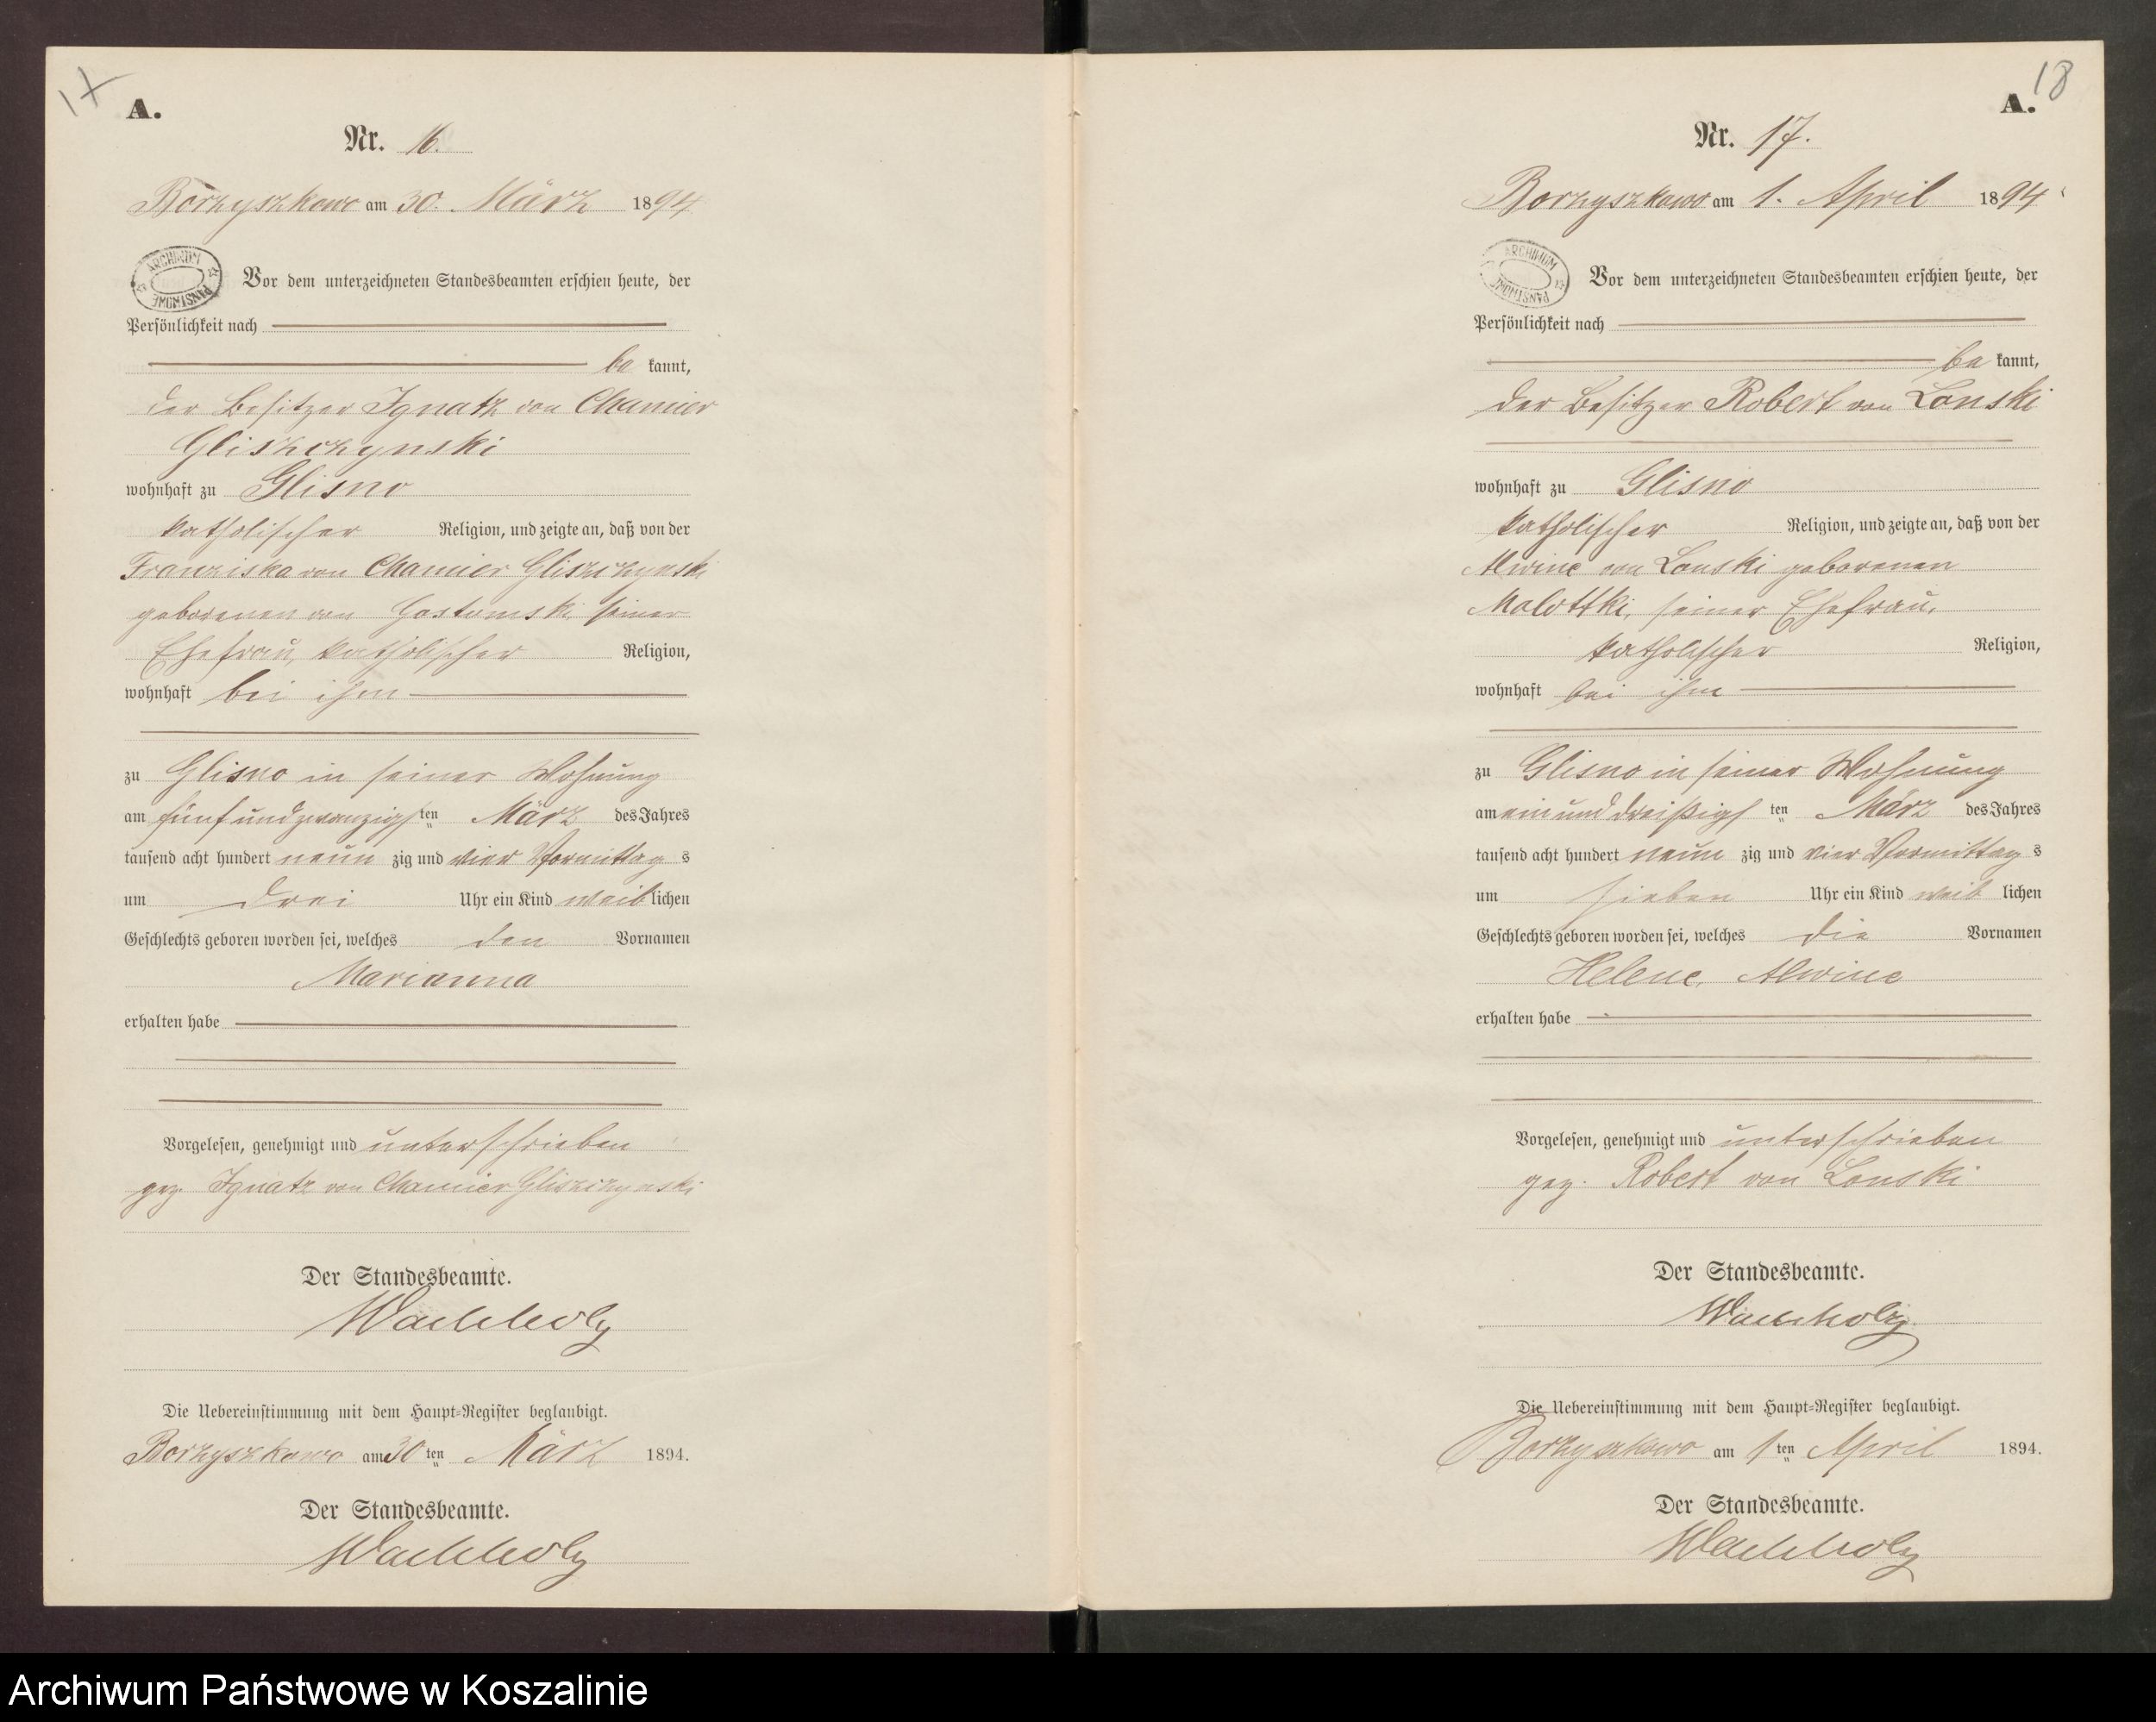 17
A.
Nr. 16.
Borzyszkowo am 30. März 1894
ARCHIWUM PAŃSTWOWE
Vor dem unterzeichneten Standesbeamten erschien heute, der
Persönlichkeit nach
be kannt,
der Besitzer Ignatz von Chamier
Gliszczynski
wohnhaft zu Glisno
katholischer Religion, und zeigte an, daß von der
Franziska von Chamier Gliszczynski
geborenen von Gostomski, seiner
Ehefrau, katholischer Religion,
wohnhaft bei ihm
zu Glisno in seiner Wohnung
am fünfundzwanzigsten März des Jahres
tausend acht hundert neun zig und vier Vormittag s
um drei Uhr ein Kind weiblichen
Geschlechts geboren worden sei, welches den Vornamen
Marianna
erhalten habe
Vorgelesen, genehmigt und unterschrieben
gez. Ignatz von Chamier Gliszczynski
Der Standesbeamte.
Wachholz
Die Uebereinstimmung mit dem Haupt-Register beglaubigt.
Borzyszkowo am 30 ten März 1894.
Der Standesbeamte.
Wachholz
18
A.
Nr. 17.
Borzyszkowo am 1. April 1894
ARCHIWUM PAŃSTWOWE
Vor dem unterzeichneten Standesbeamten erschien heute, der
Persönlichkeit nach
be kannt,
der Besitzer Robert von Lonski
wohnhaft zu Glisno
katholischer Religion, und zeigte an, daß von der
Alwine von Lonski geborenen
Malottki, seiner Ehefrau,
katholischer Religion,
wohnhaft bei ihm
zu Glisno in seiner Wohnung
am einunddreißigs ten März des Jahres
tausend acht hundert neun zig und vier Vormittag s
um sieben Uhr ein Kind weib lichen
Geschlechts geboren worden sei, welches die Vornamen
Helene, Alwine
erhalten habe
Vorgelesen, genehmigt und unterschrieben
gez. Robert von Lonski
Der Standesbeamte.
Wachholz
Die Uebereinstimmung mit dem Haupt-Register beglaubigt.
Borzyszkowo am 1 ten April 1894.
Der Standesbeamte.
Wachholz
Archiwum Państwowe w Koszalinie